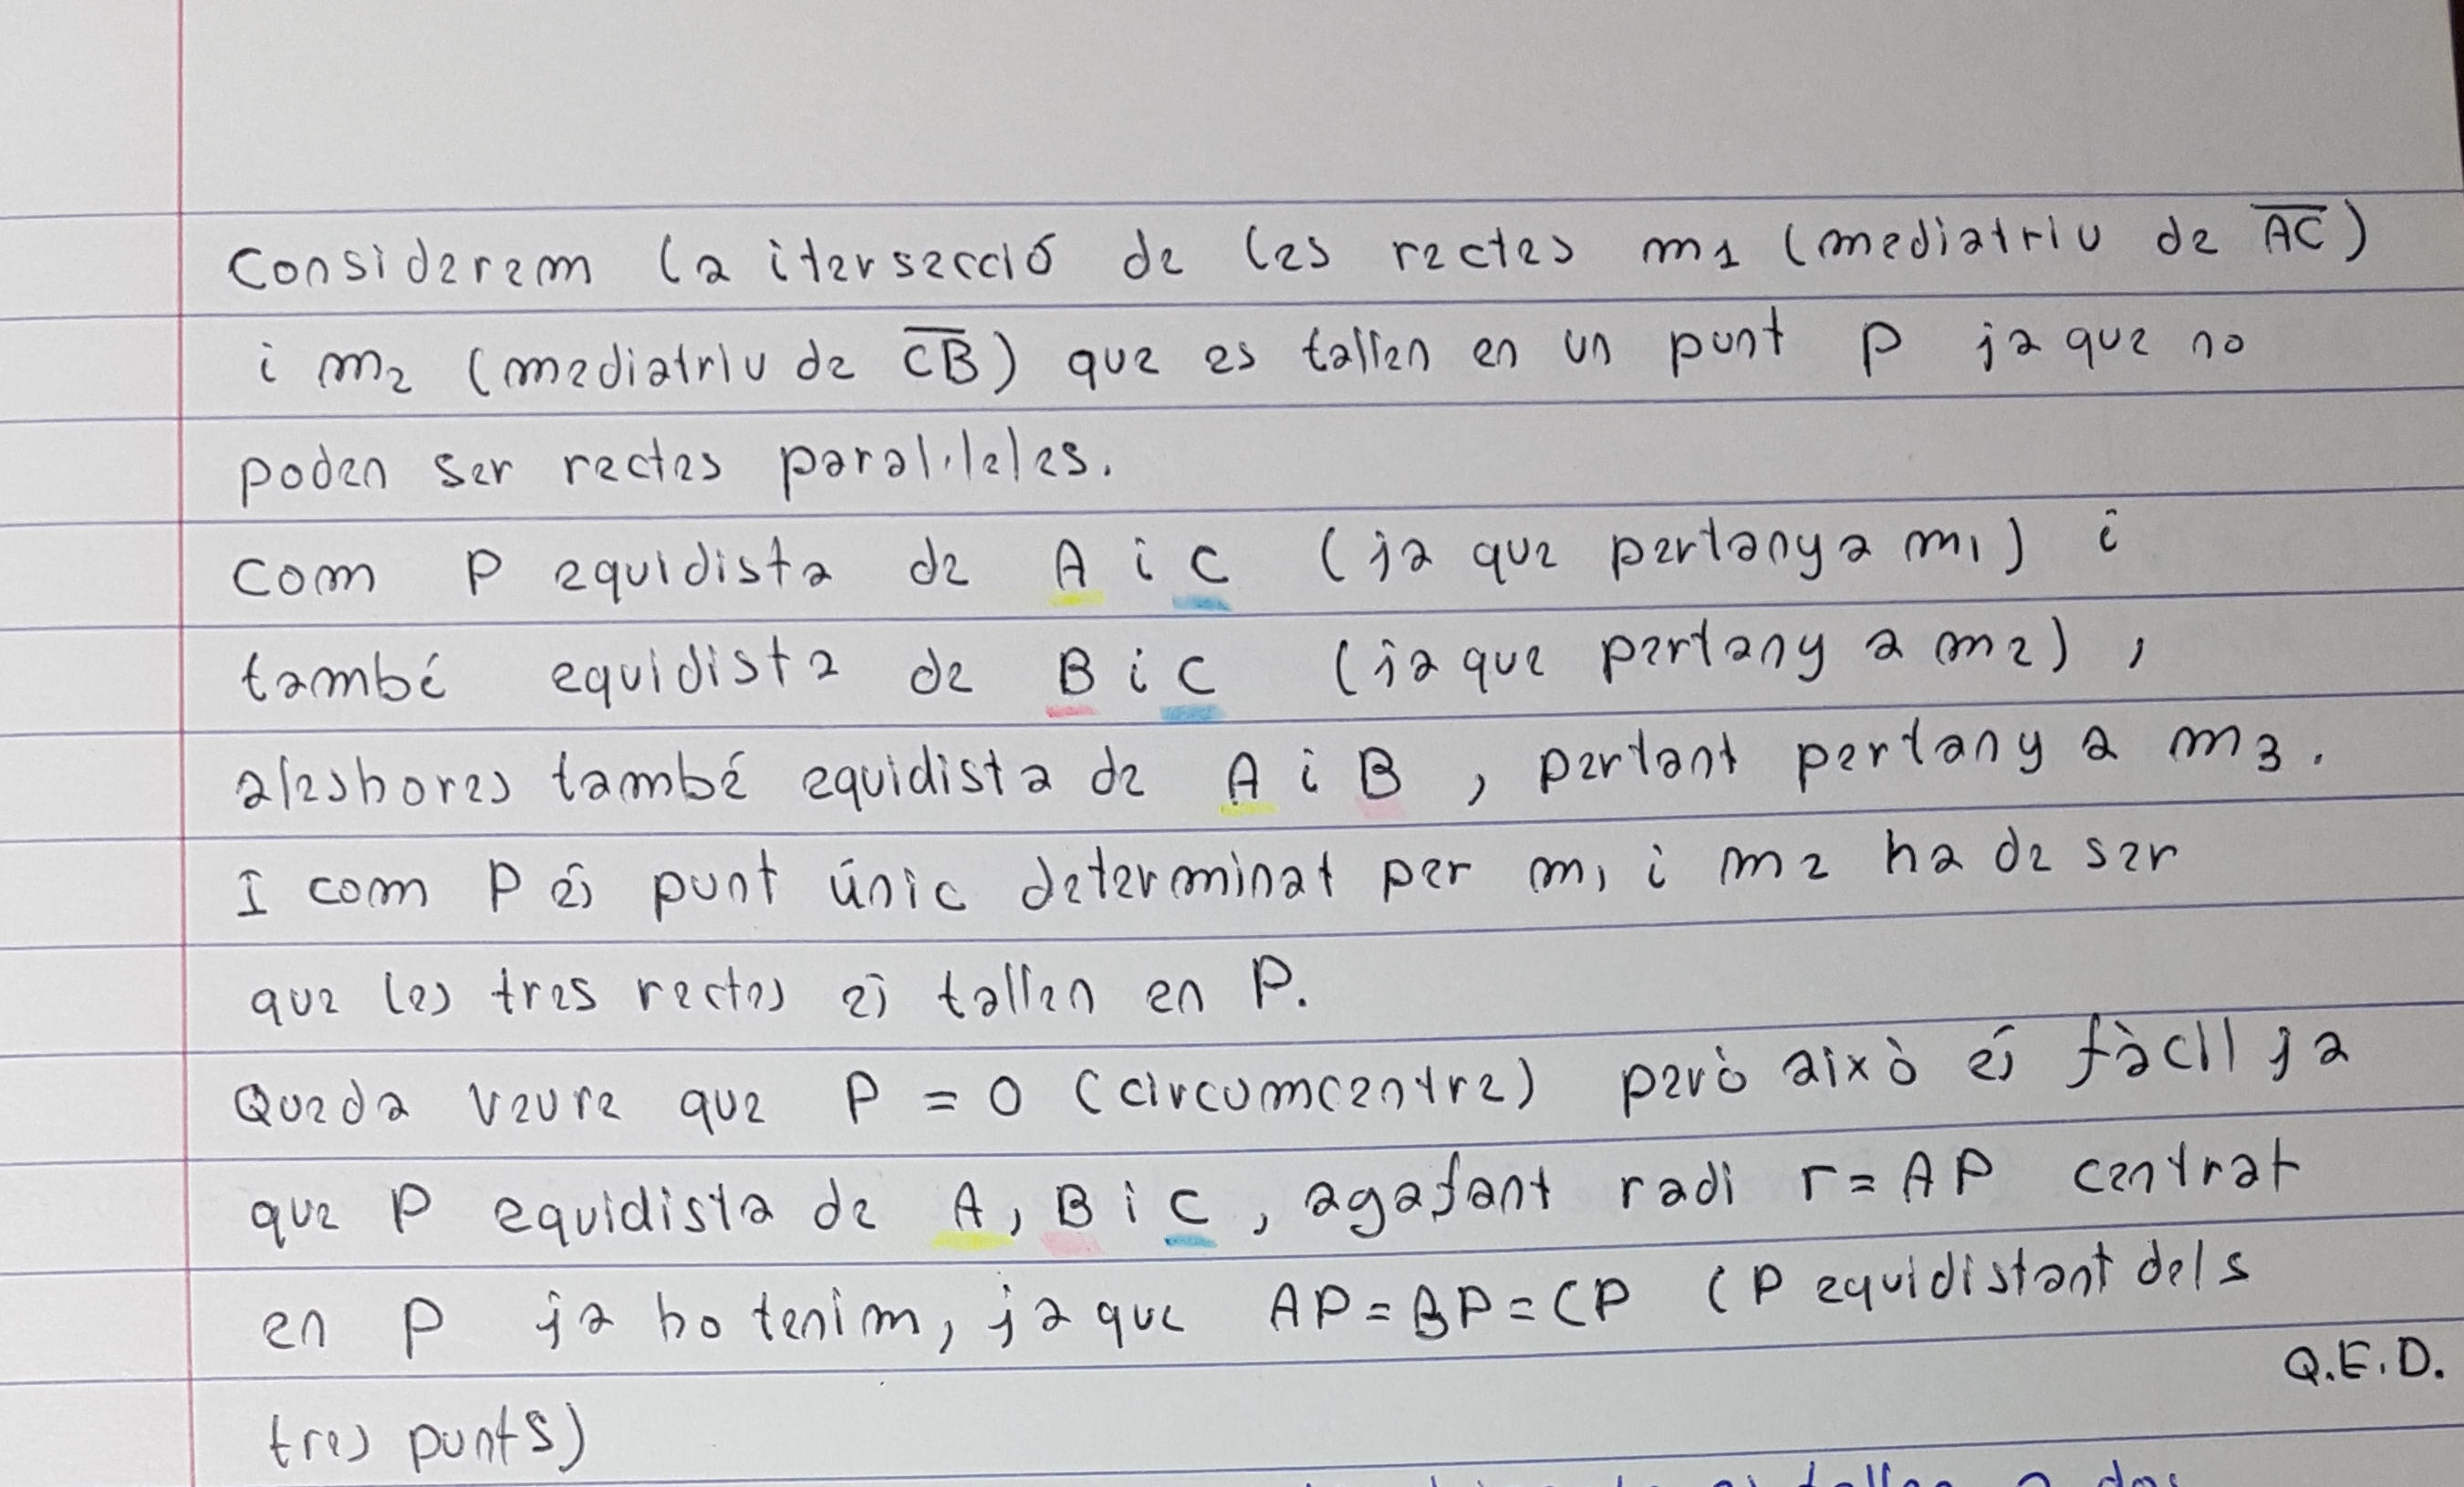 Considerem la itersecció de les rectes m1 (mediatriu de AC)
i m2 (mediatriu de CB) que es tallen en un punt P ja que no
poden ser rectes paral·leles.
Com P equidista de A i C (ja que pertany a m1) i
també equidista de B i C (ja que pertany a m2),
aleshores també equidista de A i B, pertant pertany a m3.
I com P és punt únic determinat per m1 i m2 ha de ser
que les tres rectes es tallen en P.
Queda veure que P = O (circumcentre) però això és fàcil ja
que P equidista de A, B i C, agafant radi r = AP centrat
en P ja ho tenim, ja que AP = BP = CP (P equidistant dels
tres punts)
Q.E.D.